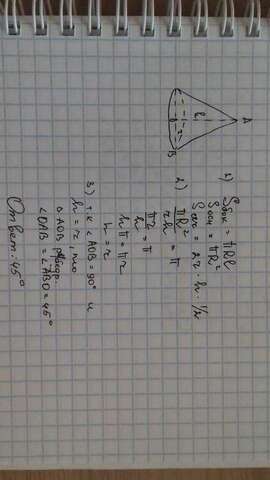 A
B
l
1) Sбок = πRl
Sосн = πR²
Sсеч = 2r · h · 1/2
2) πR² / rh = π
πr / h = π
hπ = πr
h = r
3) т.к ∠AOB = 90° и
h = r, то
△AOB равнобедр.
∠OAB = ∠ABO = 45°
Ответ: 45°